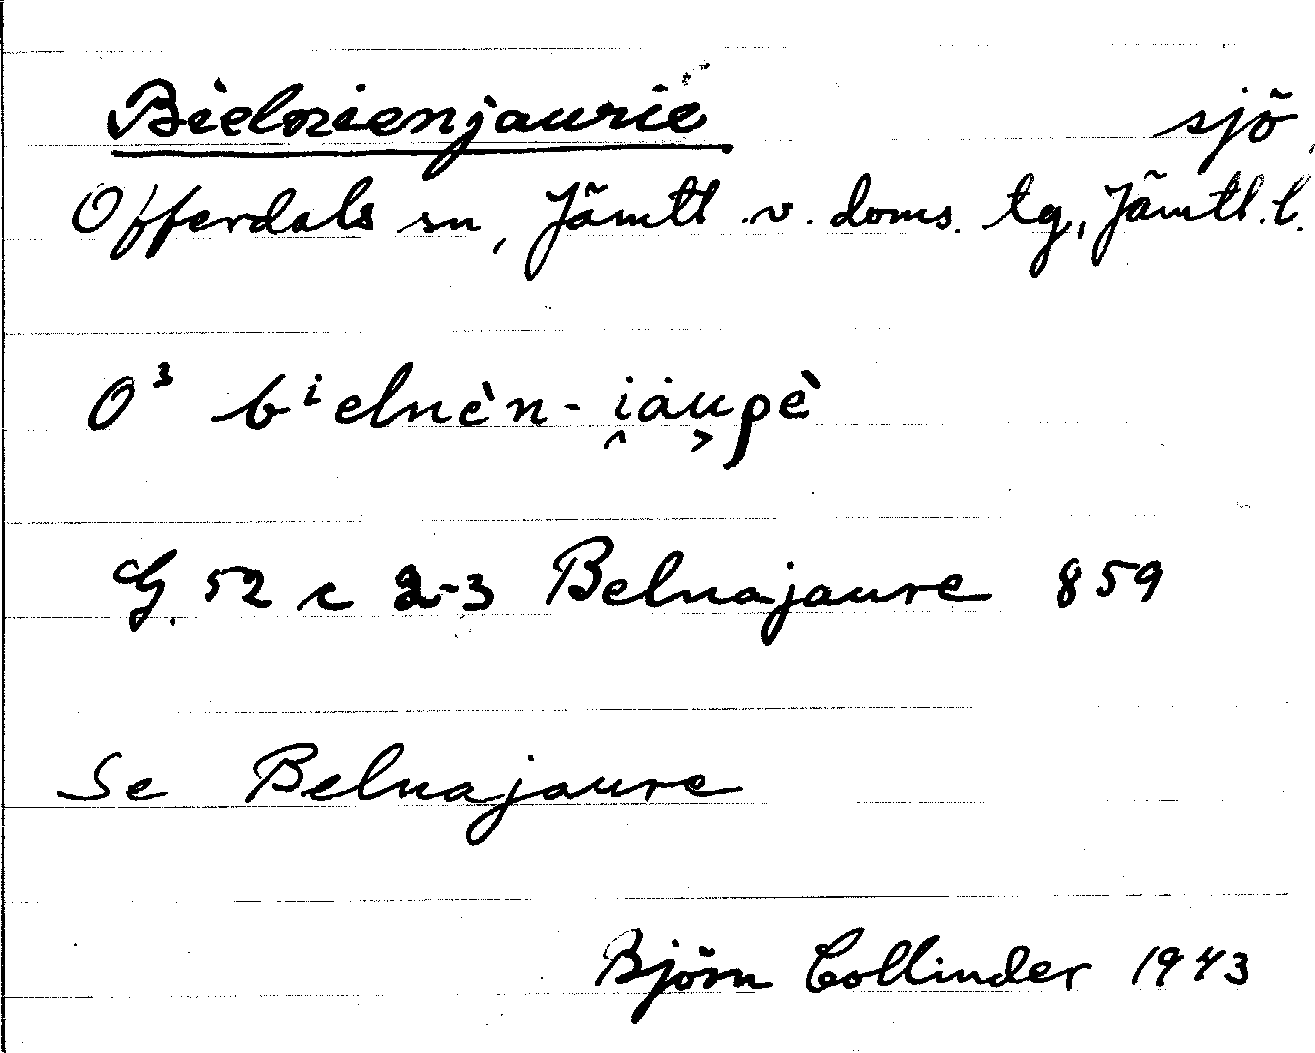 Bielnienjaurie sjö,
Offerdals sn, Jämtl. v. doms. tg, Jämtl. l.
O³ bⁱelnèn-i̭äu̯ρè
G. 52 c 2-3 Belnajaure 859
Se Belnajaure
Björn Collinder 1943